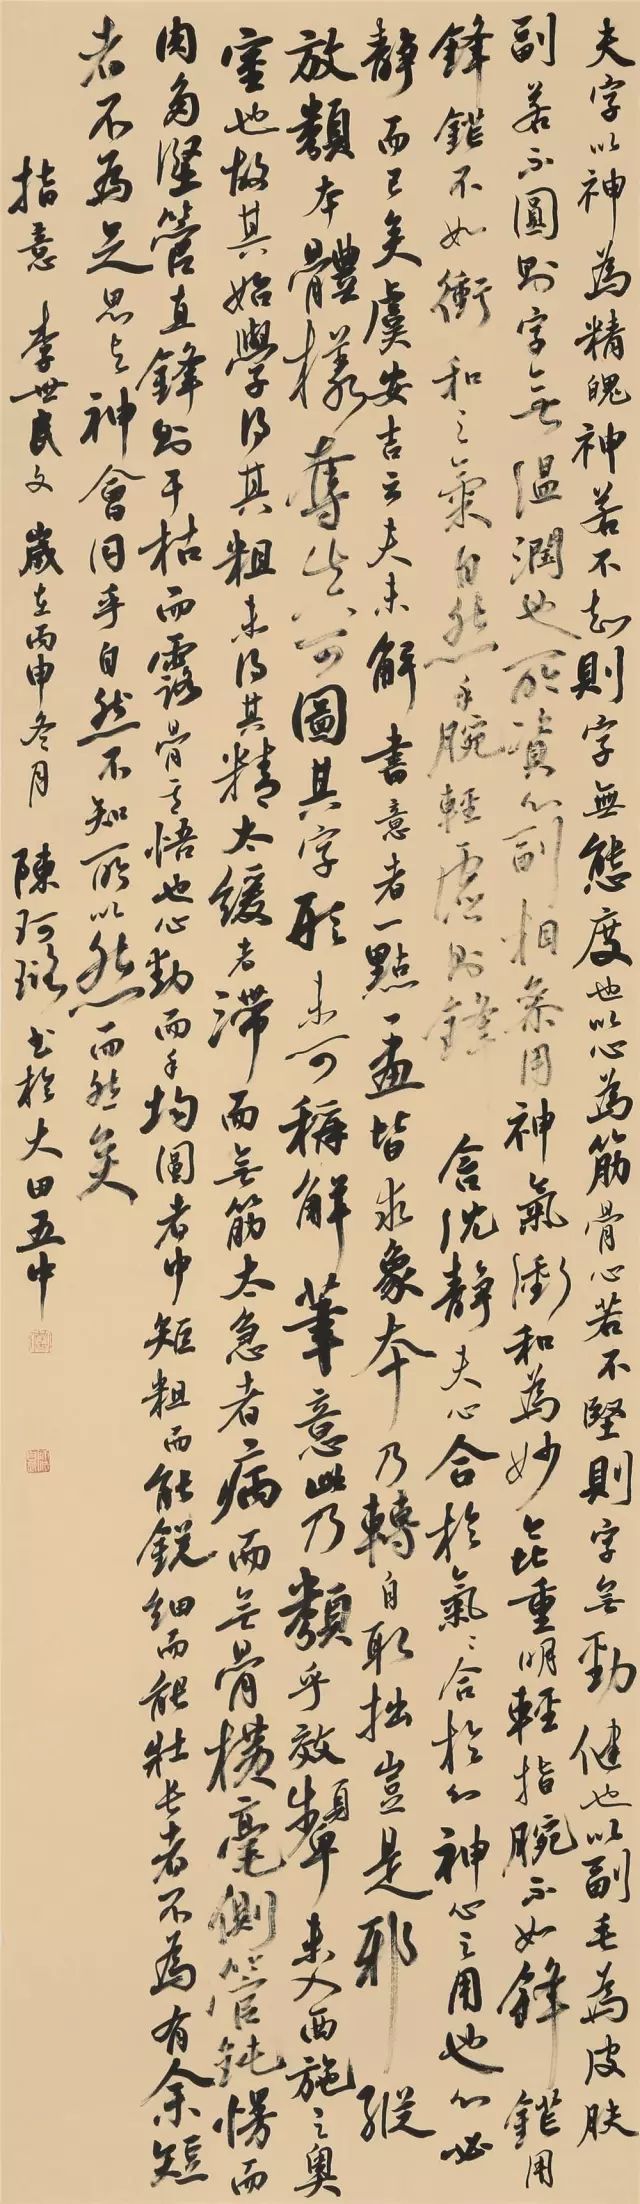 夫字以神為精魄神若不和則字無態度也以心為筋骨心若不堅則字無勁健也以副毛為皮肤
副若不圓則字無温潤也所資心副相參用神氣衝和為妙今比重明輕指腕不如鋒鋩用
鋒鋩不如衝和之氣自然手腕輕虛則鋒含沈靜夫心合於氣〻合於心神心之用也心必
靜而已矣虞安吉云夫未解書意者一點一畫皆求象本乃轉自取拙豈是邪縱
放類本體樣奪其可圖其字形未可稱解筆意此乃類乎效顰未入西施之奧
室也故其始學得其粗未得其精太緩者滯而無筋太急者病而無骨橫毫側管鈍慢而
肉多豎管直鋒則干枯而露骨其悟也心動而手均圓者中矩粗而能銳細而能壯長者不為有余短
者不為足思與神會同乎自然不知所以然而然矣
指意 李世民文 歲在丙申冬月 陳珂璐書於大田五中